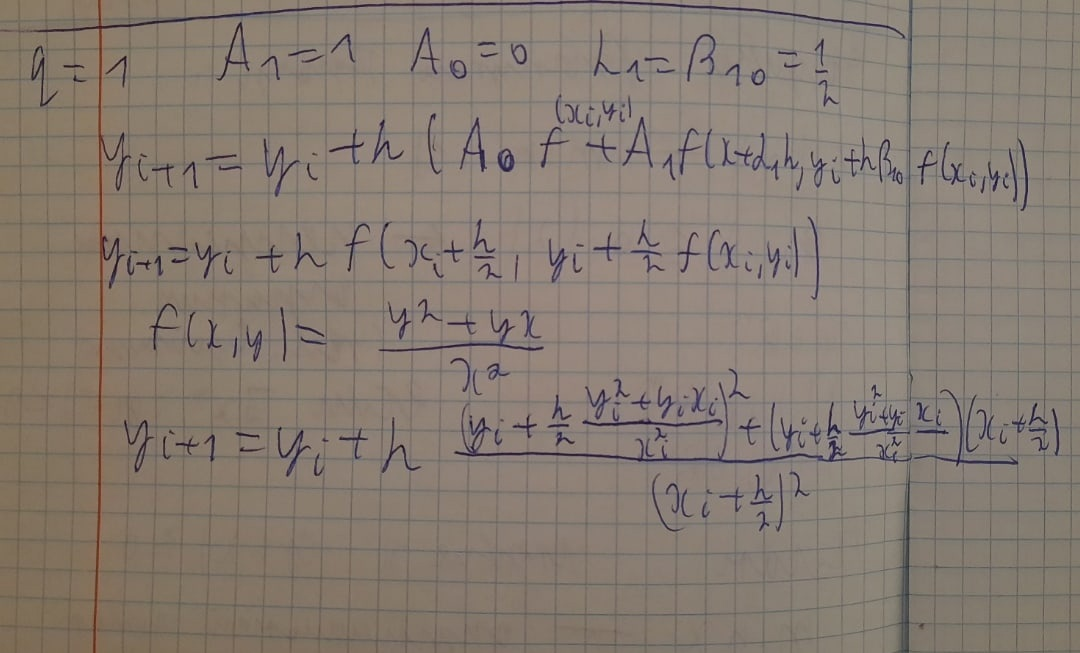 q = 1 A₁ = 1 A₀ = 0 α₁ = β₁₀ = 1/2
yᵢ₊₁ = yᵢ + h (A₀ f(xᵢ, yᵢ) + A₁ f(x + α₁h, yᵢ + hβ₁₀ f(xᵢ, yᵢ))
yᵢ₊₁ = yᵢ + h f(xᵢ + h/2, yᵢ + h/2 f(xᵢ, yᵢ))
f(x, y) = (y² + yx)/x²
yᵢ₊₁ = yᵢ + h ((yᵢ + h/2 (yᵢ² + yᵢxᵢ)/xᵢ²)² + (yᵢ + h/2 (yᵢ² + yᵢxᵢ)/xᵢ²)(xᵢ + h/2))/(xᵢ + h/2)²